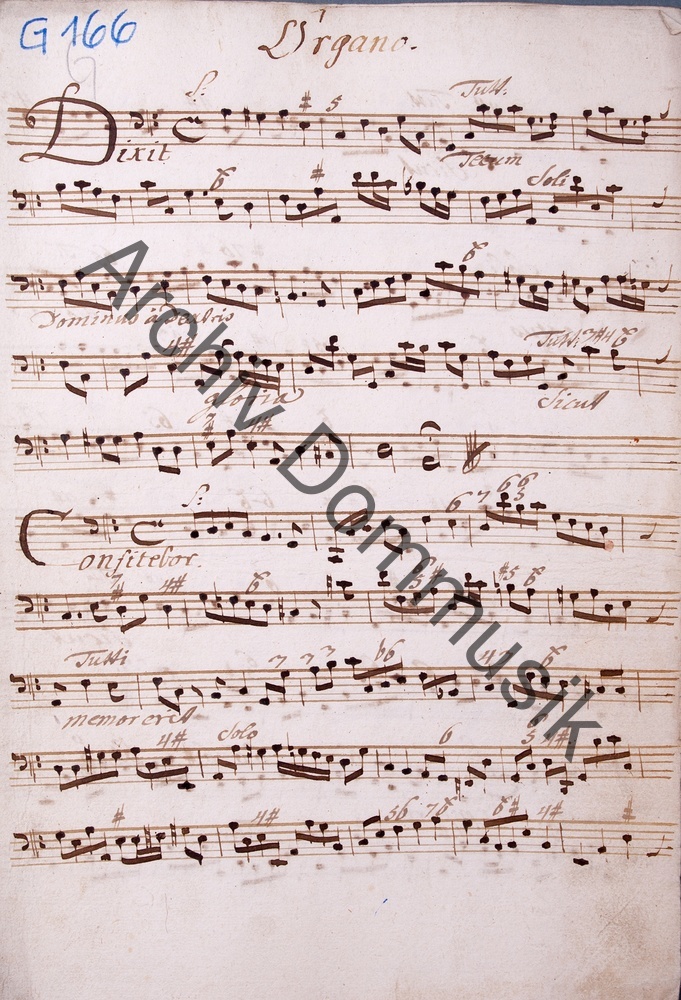 G 166
Organo.
S:
Tutt.
Dixit
Tecum
Soli
Dominus à Dextris
Tutti
gloria
Sicut
S:
Confitebor.
Tutti
memor erit
Solo
Archiv Dommusik